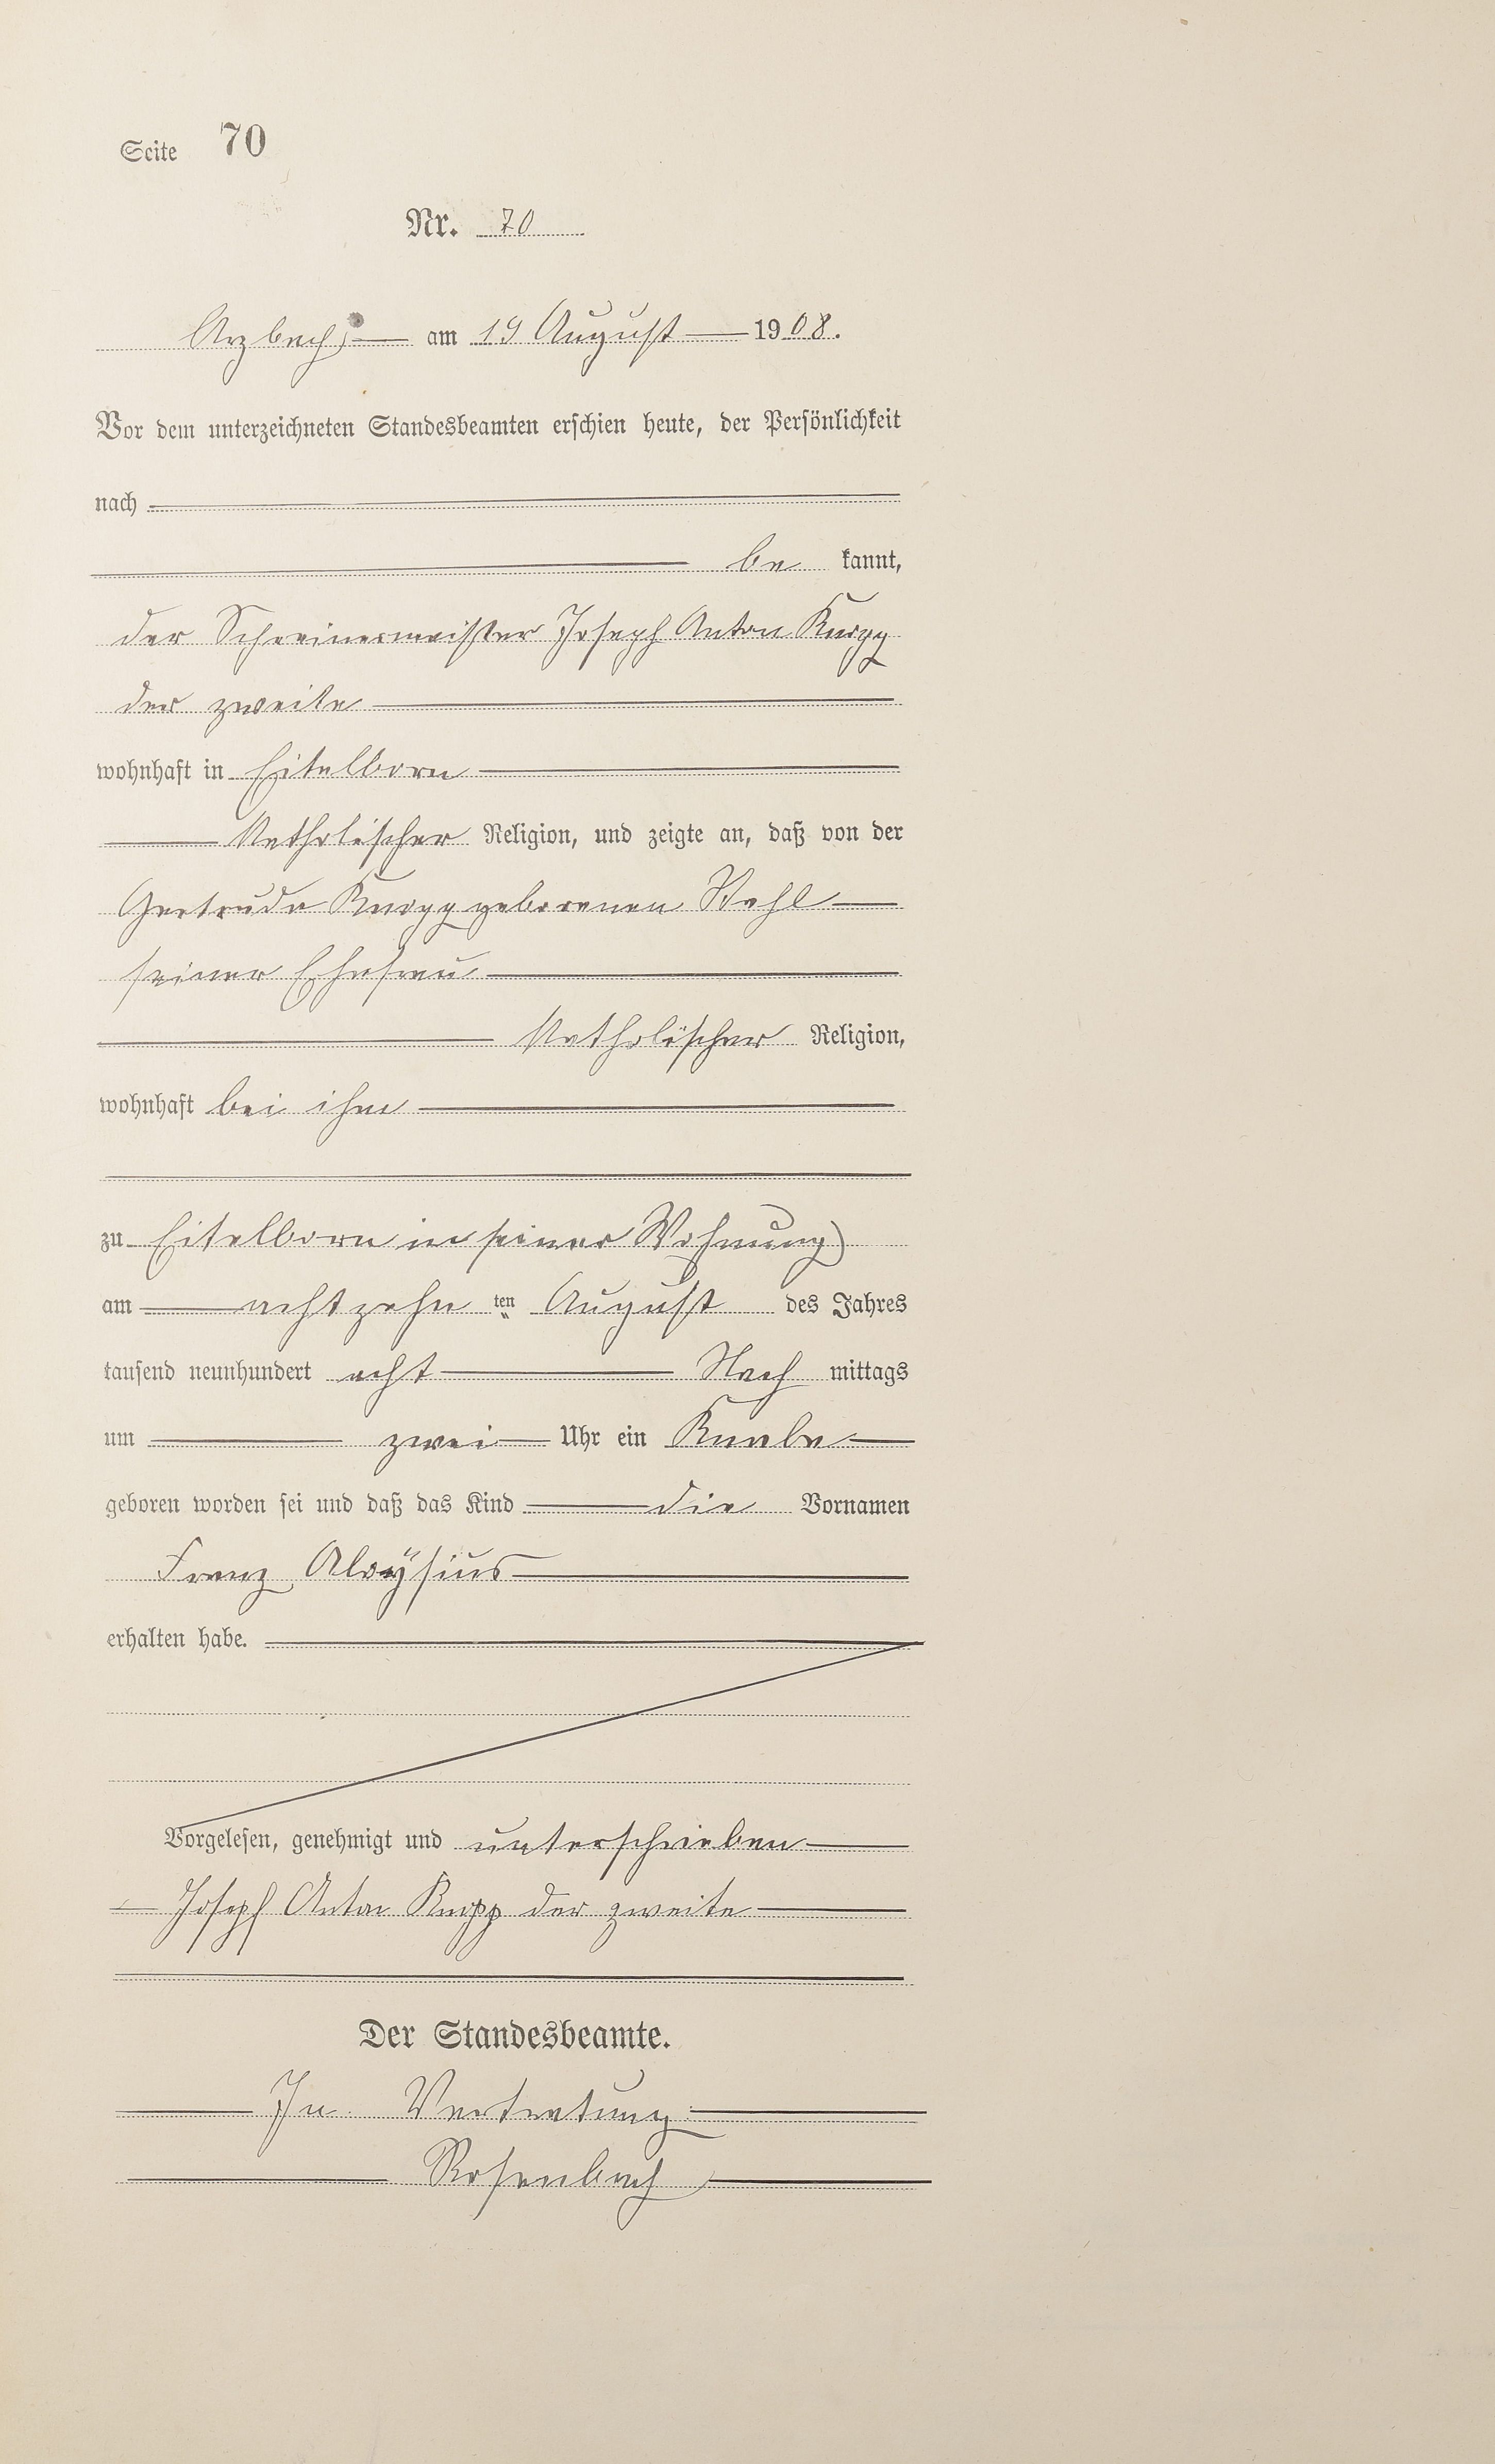 Seite 70
Nr. 70
Arzbach, am 19 August 1908.
Vor dem unterzeichneten Standesbeamten erschien heute, der Persönlichkeit
nach
be kannt,
der Schreinermeister Joseph Anton Knopp
der zweite
wohnhaft in Eitelborn
Katholischer Religion, und zeigte an, daß von der
Gertrude Knopp geborenen Stahl
seiner Ehefrau
Katholischer Religion,
wohnhaft bei ihm
zu Eitelborn in seiner Wohnung
am achtzehn ten August des Jahres
tausend neunhundert acht Nach mittags
um zwei Uhr ein Knabe
geboren worden sei und daß das Kind die Vornamen
Franz Aloÿsius
erhalten habe.
Vorgelesen, genehmigt und unterschrieben
Joseph Anton Knopp der zweite
Der Standesbeamte.
In Vertretung
Rosenbach